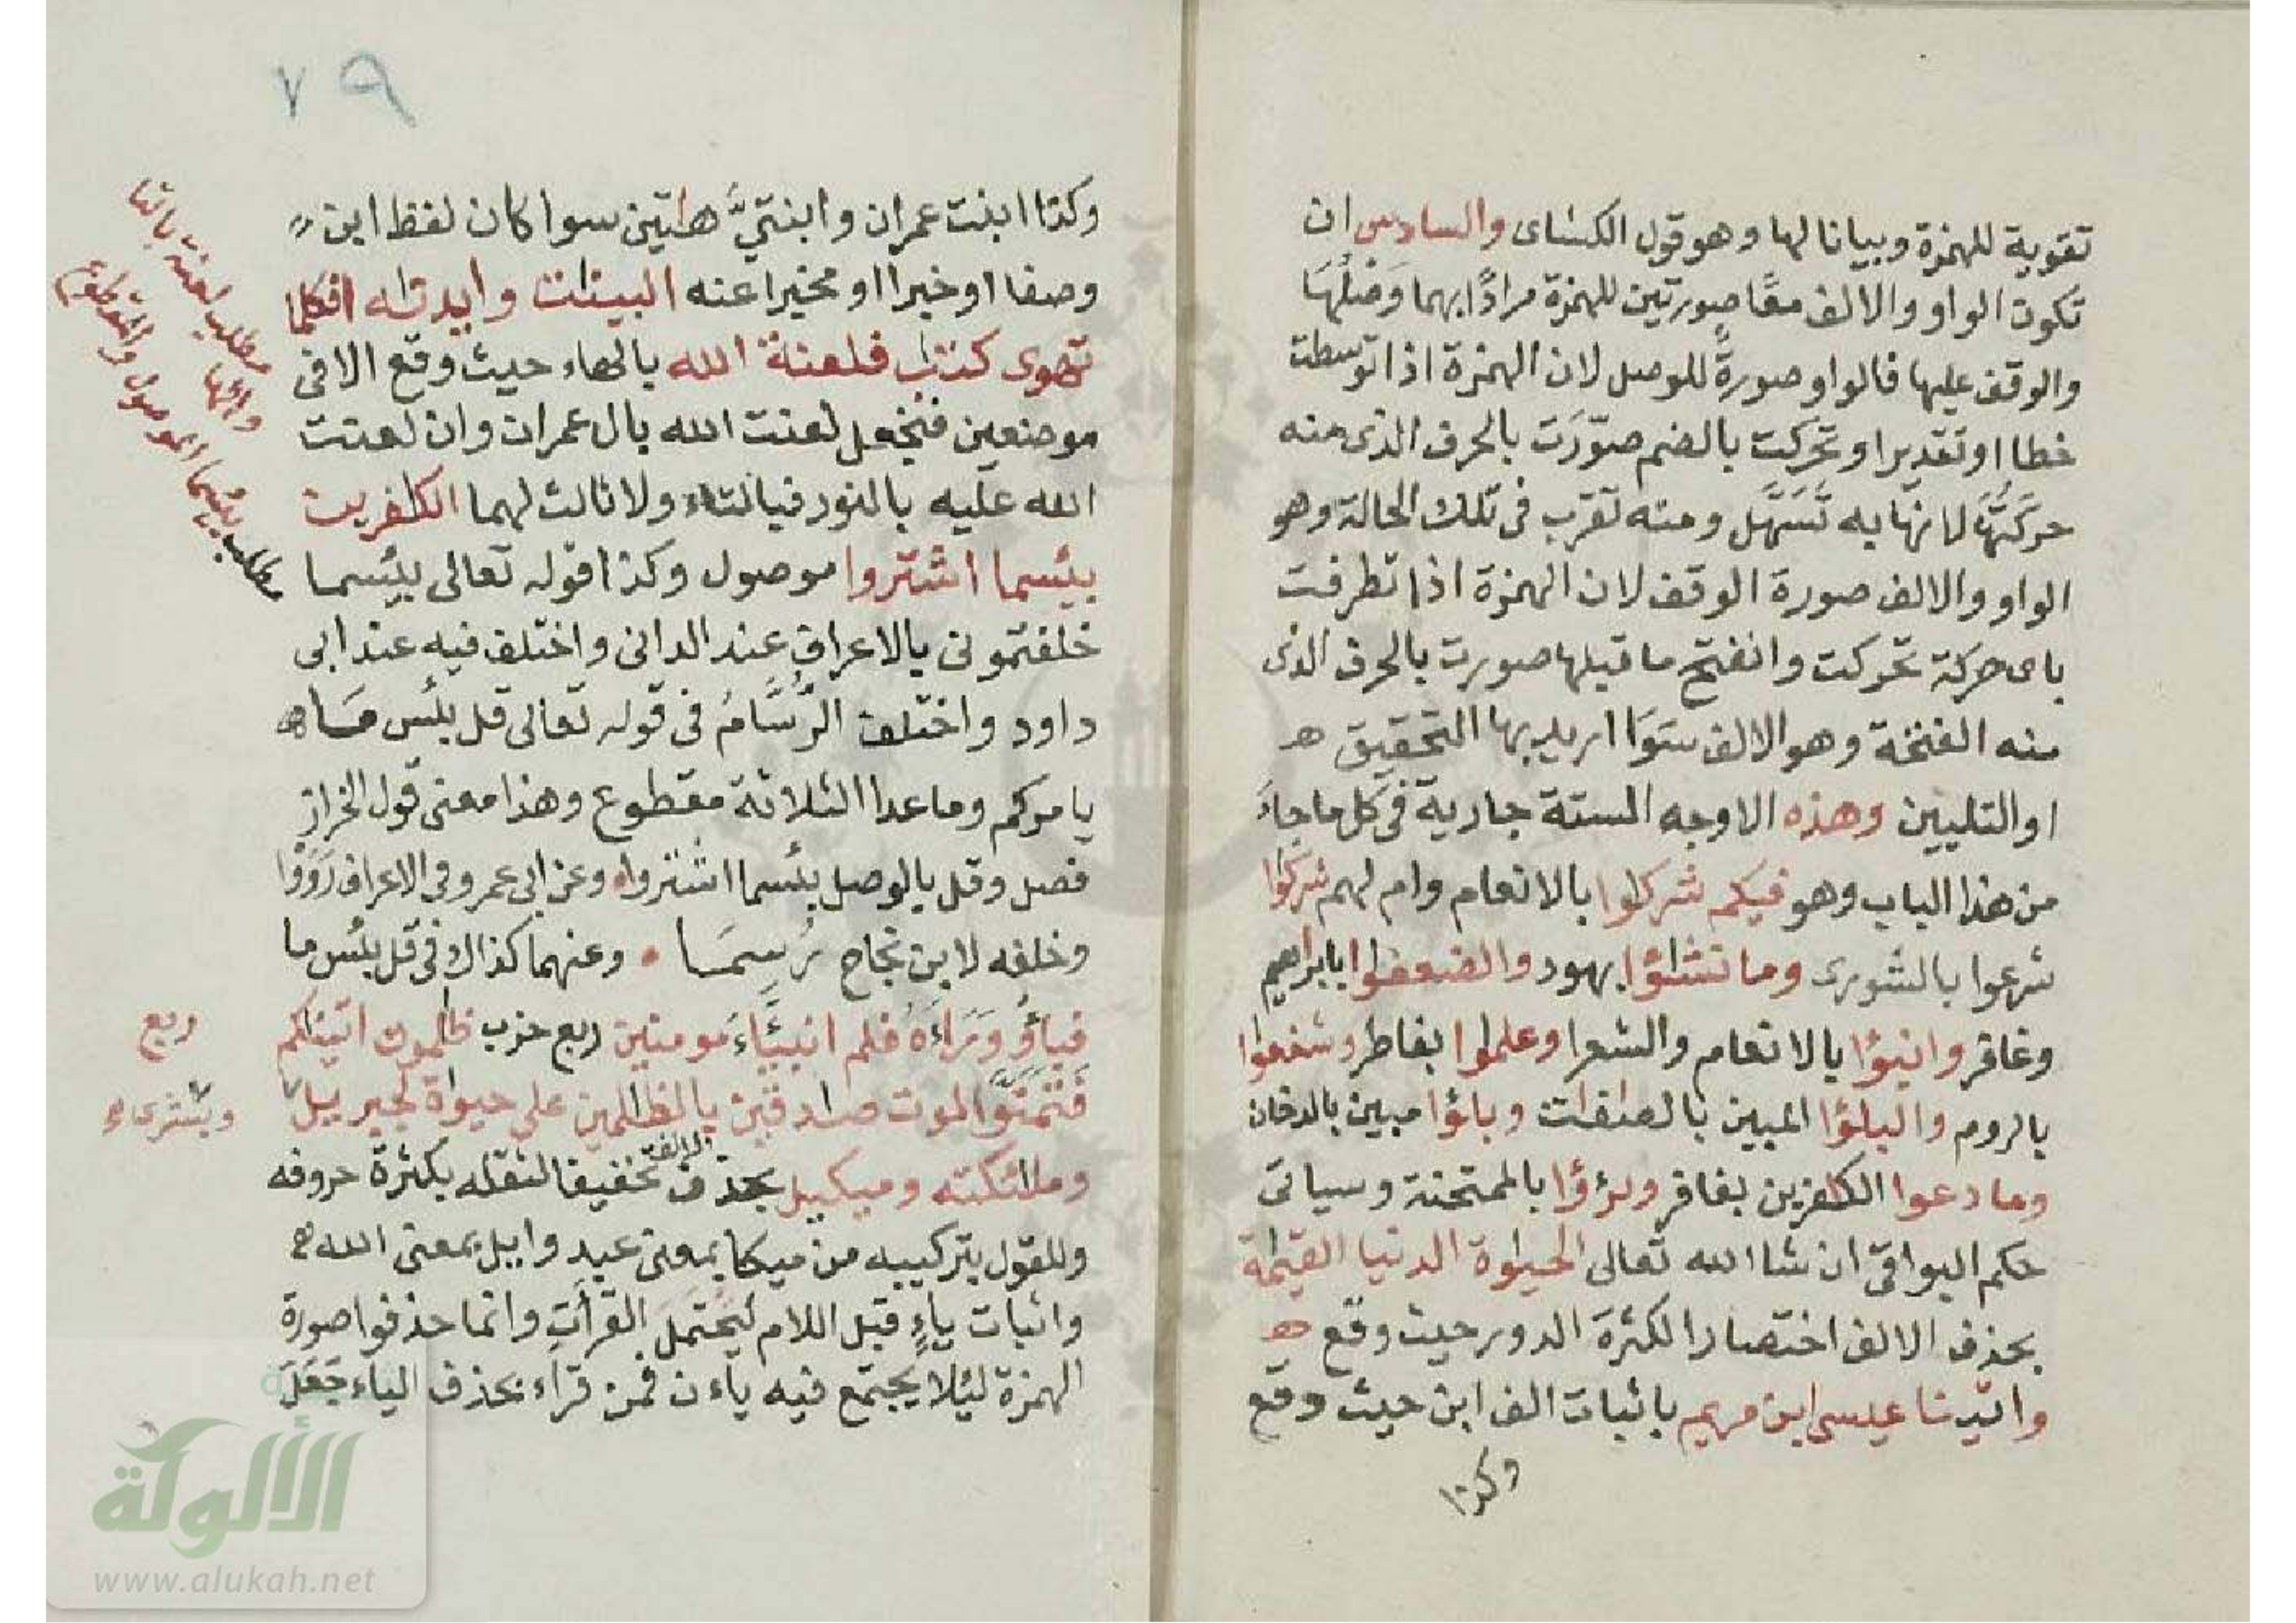 تقوية للهمزة وبيانا لها وهو قول الكسٰاى والسادس ان
تكون الواو والالف معًا صورتين للهمزة مرادًا بهما وَصْلُهَا
والوقف عليها فالواو صورةً للوصل لان الهمزة اذا توسطت
خطا او تقديرا وتحركت بالضم صوّرَت بالحرف الذى منه
حركتُهَا لانها به تُسَهَّل ومنه تقرب فى تلك الحالة وهو
الواو والالف صورة الوقف لان الهمزة اذا تطرفت
باى حركة تحركت وانفتح ما قبلها صورت بالحرف الذى
منه الفتحة وهو الالف سَوَا اريد بها التحقيق هـ
او التليين وهذه الاوجه الستة جارية فى كل ما جاءَ
من هذا الباب وهو فيكم شركٰوا بالانعام وام لهم شركٰوا
شرعوا بالشورى وما نشٰؤا بهود والضعفٰوا بابراهيم
وغافر وانبٰؤا بالانعام والشعرا وعلمٰوا بفاطر وشفعٰوا
بالروم والبلٰؤا المبين بالصٰفٰت وبلٰؤا مبين بالدخان
وما دعوا الكٰفرين بغافر وبرٰؤا بالممتحنة وسياتى
حكم البواقى ان شا الله تعالى الحيوٰة الدنيا القيٰمة
بحذف الالف اختصارا لكثرة الدور حيث وقع هـ
واتينا عيسى ابن مريم باثبات الف ابن حيث وقع
وكذا
٧٩
وكذا ابنت عمران وابنتيَّ هٰتين سوا كان لفظ ابن
وصفا او خبرا او مخبرا عنه البينٰت وايدنٰه افكلما
تهوى كذبتم فلعنة الله بالهاء حيث وقع الا فى
موضعين فنجعل لعنت الله بال عمران وان لعنت
الله عليه بالنور فبالتاء ولا ثالث لهما الكٰفرين
بئسما اشتروا موصول وكذا قوله تعالى بئسما
خلفتمونى بالاعراف عند الدانى واختلف فيه عند ابى
داود واختلف الرُّسَّامُ فى قوله تعالى قل بئس مَا هـ
يامركم وما عدا الثلاثة مقطوع وهذا معنى قول الخراز
فصل وقل بالوصل بئسما اشتروا وعن ابى عمرو فى الاعراف رَوَوْا
وخلفه لابن نجاح رُسِمَا • وعنهما كذاك فى قل بئس ما
فباؤُ وَرَاءَهُ فلم انبيَّاءَ مومنين ربع حزب ظٰلمون اتينٰكم
فَتَمَنَّوُا الموت صٰدقين بالظٰلمين على حيوٰة لجبريل
وملٰئكته وميكيل بحذف الالف تخفيفا لثقله بكثرة حروفه
وللقول بتركيبه من ميكا بمعنى عبد وايل بمعنى الله هـ
واثبات ياءٍ قبل اللام ليحتمل القرأت وانما حذفوا صورة
الهمزة ليلا يجتمع فيه ياءن فمن قراء بحذف الياء جَعَلَ
مطلب لعنت بالتا
والها
مطلب بئسما الموصول والمقطوع
ربع
الألوكة
www.alukah.net